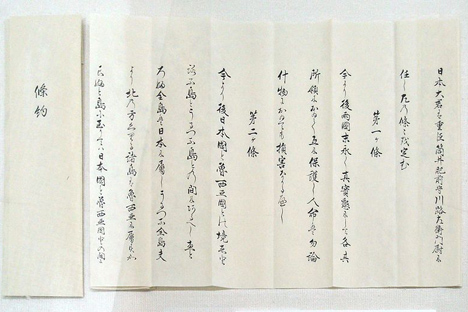 日本大君ハ重臣筒井肥前守川路左衛門尉に
任し左の條々を定む
第一ヶ條
今より後両國末永く真實懇にして各其
所領において互に保護し人命は勿論
什物においても損害なかるへし
第二ヶ條
今より後日本國と魯西亜國との境ヱト
ロフ島とウルップ島との間にあるへしヱト
ロフ全島は日本に属しウルップ全島夫
より北の方クリル諸島は魯西亜に属すカ
ラフト島に至りてハ日本國と魯西亜國の間
條約